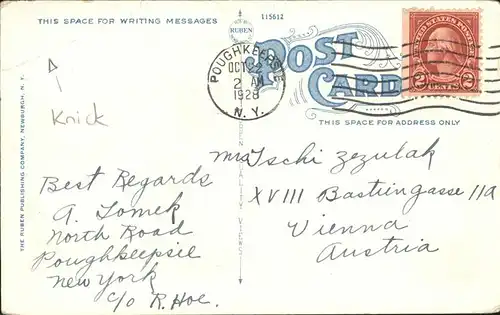 THIS SPACE FOR WRITING MESSAGES
RUBEN
115612
POST
CARD
POUGHKEEPSIE
OCT 22
2 AM
1928
N.Y.
UNITED STATES POSTAGE
2 CENTS 2
THIS SPACE FOR ADDRESS ONLY
Knick
THE RUBEN PUBLISHING COMPANY, NEWBURGH, N. Y.
QUALITY VIEWS
Best Regards
A. Tomek
North Road
Poughkeepsie
New York
c/o R. Hoe.
Mrs Tschi Zezulak
XVIII Bastiengasse 11a
Vienna
Austria